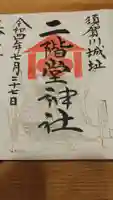 須賀川城址
二階堂神社
令和四年七月二十七日